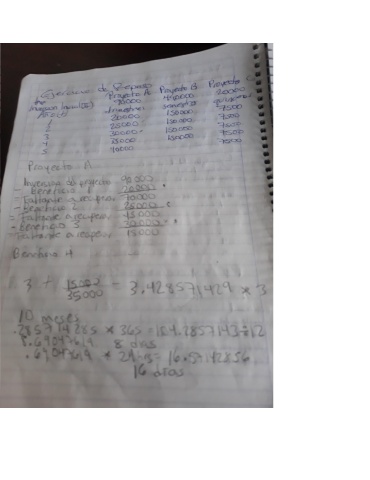 Ejercicio de Repaso
Proyecto A Proyecto B Proyecto C
Inversion Inicial 90000 450000 20000
trimestres semestres
1 20000 150000 7500
2 25000 150000 7500
3 30000 150000 7500
4 35000 150000 7500
5 40000 7500
Proyecto A
Inversion del proyecto 90000
- beneficio 1 20000
= Faltante a recuperar 70000
- beneficio 2 25000
= Faltante a recuperar 45000
- beneficio 3 30000
Faltante a recuperar 15000
Beneficio 4
3 + 15000 / 35000 = 3.428571429 * 3
10 meses
.285714285 * 365 = 104.2857143 ÷ 12
8.69047619 8 dias
.69047619 * 24 = 16.57142856
16 dias